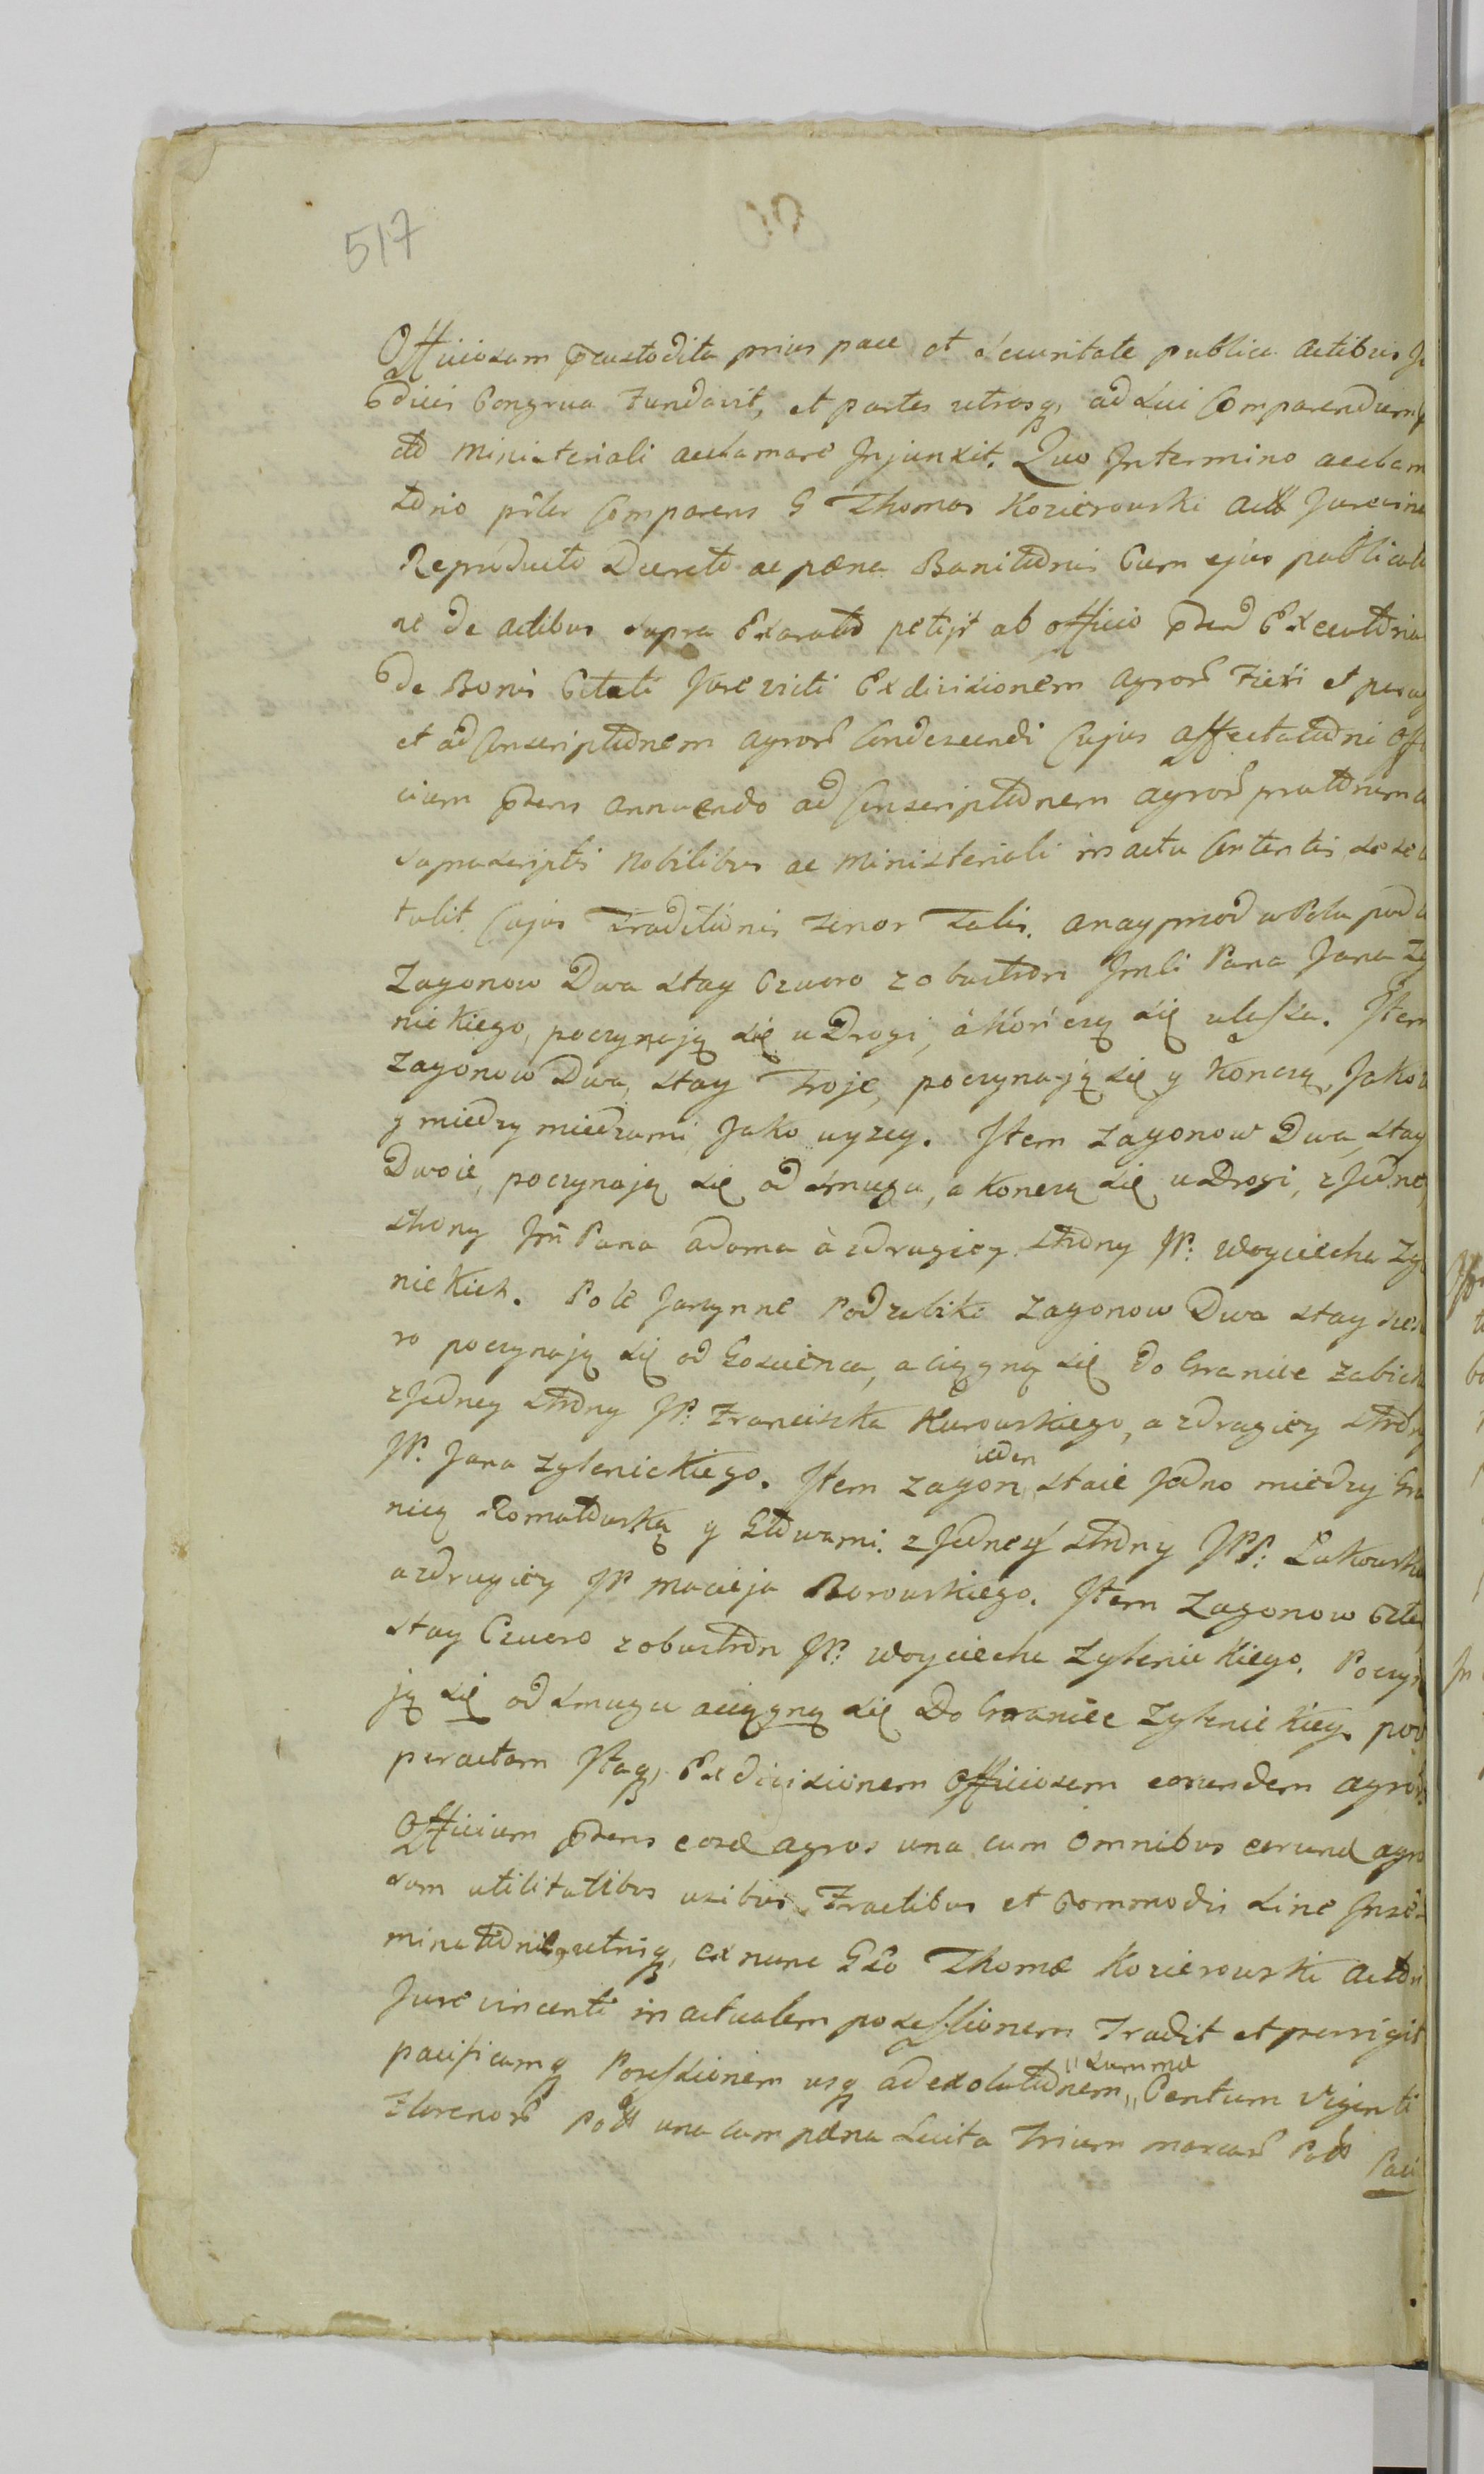 517
Officiosam p̄custodita prius pace et securitate publica actibus
Condescensionem congrua Fundavit, et partes utrasq, ad sui Comparendum
ac Ministeriali acclamare Injunxit. Quo In termino acclam
tionis p̄nlr Comparens G Thomas Kozierowski actt Jurevin
Reproducto Decreto ac pæna Banitionis Cum ejus publicatio
ne de actibus supra Exarato petijt ab officio p̄nti Executionem
de Bonis Citati Jurevicti Exdivisionem agror Fieri et perag
et ad Conscriptionem agror Condescendi Cujus affectationi Offi
cium p̄sens annuendo ad Conscriptionem agror pratorum
suprascriptis Nobilibus ac Ministeriali in actu Contentis sese
tulit. Cujus Traditionis tenor talis. a nayprzod w Polu pod
Zagonow Dwa stay Czworo z obustron Jmci Pana Jana Zy
nickiego, poczynają się u Drogi, a kończą się u lasku. Item
zagonow Dwa, stay Troje, poczynają się y kończą, Jako
y miedzy miedzami Jako wyzey. Item zagonow Dwa, stay
Dwoie, poczynają się od smugu, a konczą się u Drogi, z Jedney
strony Jm Pana Adama a z drugiey strony JP: Woyciecha Zyl
nickich. Pole Jarzynne Podzubiki zagonow Dwa stay szes
ro poczynają się od Goscienca, a ciągną się do Granice Zabick
z Jedney strony JP. Franciszka Kurowskiego, a z drugiey strony
JP. Jana Zylenickiego. Item zagon ieden staie Jedno miedzy Gra
nicą Romatowską y Głowami. z Jedney strony JPP: Łukowski
a z drugiey JP Macieja Borowskiego. Item Zagonow Czte
stay Czworo z obustron JP: Woyciecha Zylenickiego. Poczyn
ją się od smugu a ciągną się Do Granice Zylenickiey. post
peractam Itaq, Exdivisionem Officiosam eorundem agror
Officium p̄sens eosd agros una cum omnibus eorund agro
rum utilitatibus usibus Fructibus et Commodis sine Inse
minationib, utniq, ex nunc Gso Thomæ Kozierowski actori
Jurevincenti in actualem possessionem Tradit et porrigit
pacificamq Possessionem usq ad exolutionem, summæ Centum viginti
Florenor Poll una cum pæna Lucita Trium marcar Poll
Paci